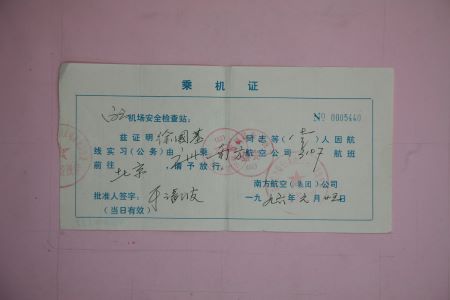 乘机证
机场安全检查站： № 0005440
兹证明徐国基同志等（壹）人因航
线实习（公务）由广州乘南方航空公司3107航班
前往北京，请予放行。
南方航空（集团）公司
批准人签字： 一九九六年元月
（当日有效）